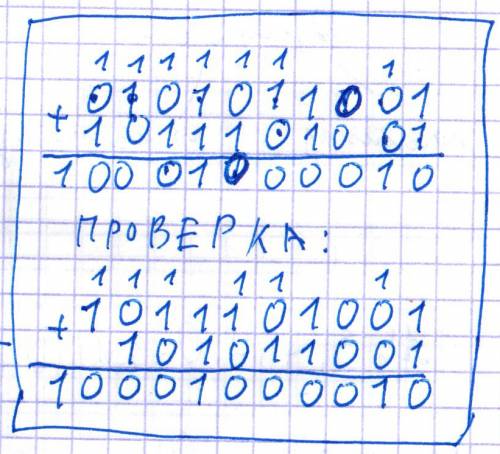 1 1 1 1 1 1 1
0 1 0 1 0 1 1 0 0 1
+ 1 0 1 1 1 0 1 0 0 1
1 0 0 0 1 0 0 0 0 1 0
ПРОВЕРКА:
1 1 1 1 1 1
+ 1 0 1 1 1 0 1 0 0 1
1 0 1 0 1 1 0 0 1
1 0 0 0 1 0 0 0 0 1 0